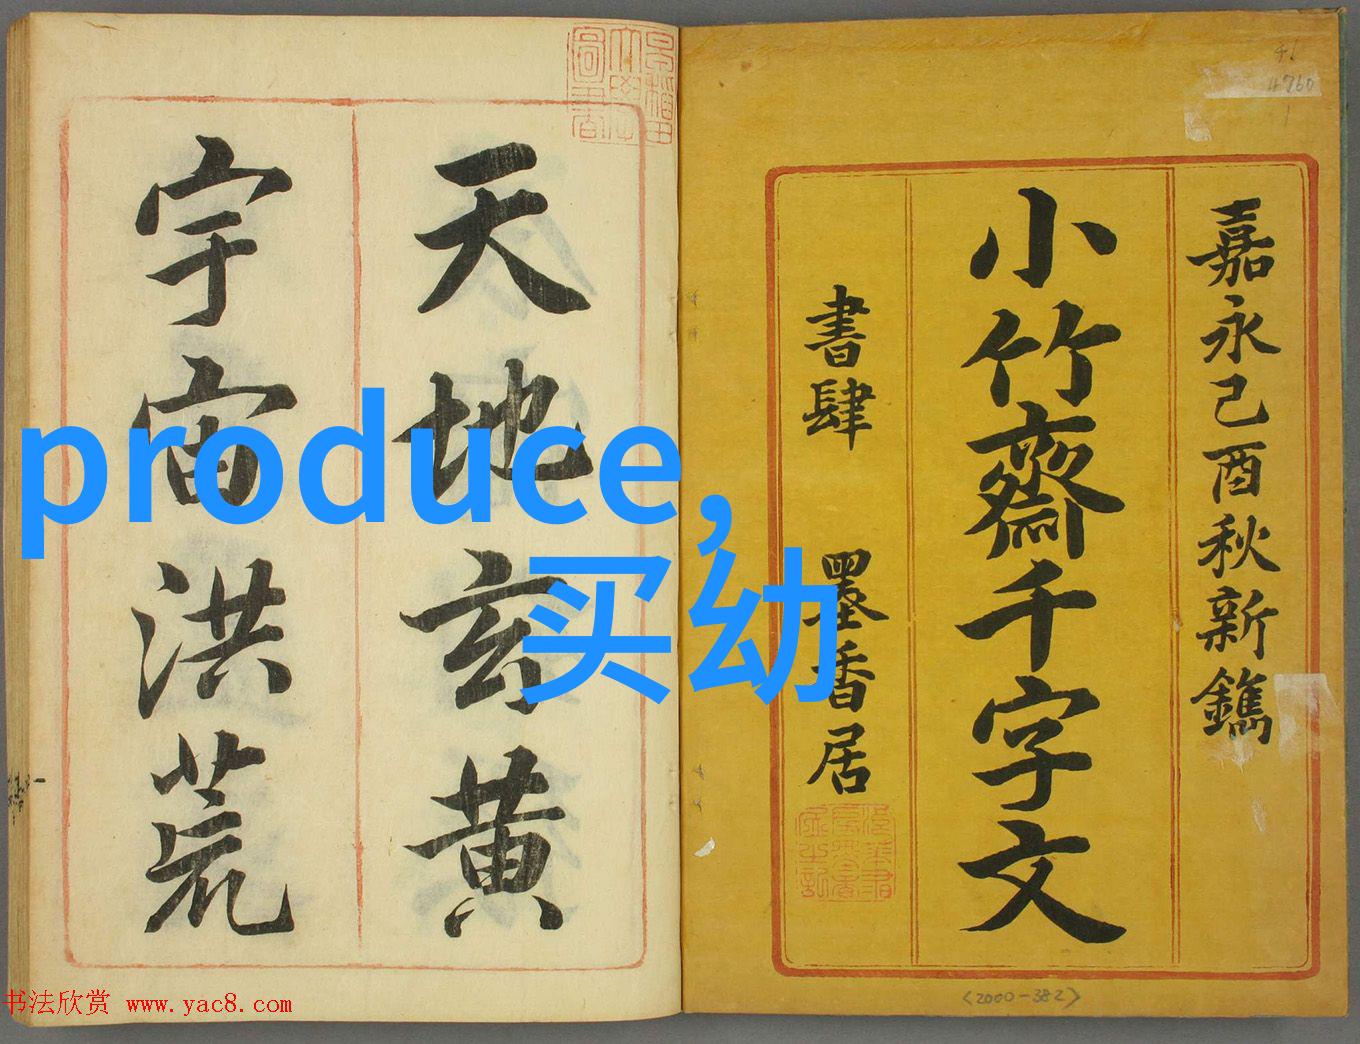 嘉永己酉秋新鐫
小竹齋千字文
書肆 墨香居
天地玄黄
宇宙洪荒
produce,
买幼
46
4760
<2000-382>
书法欣赏 www.yac8.com